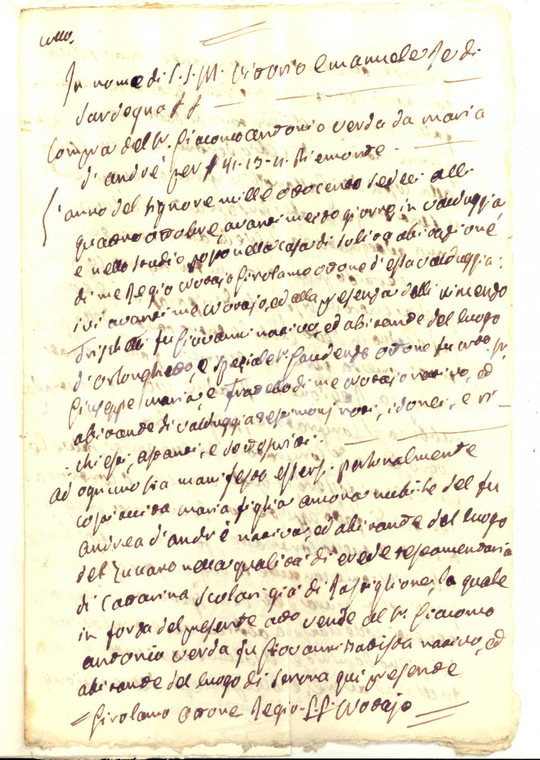 In nome di S. S. R. M. Vittorio Emanuele Re di
Sardegna
Compra del Sr. Giacomo Antonio Verda da Maria
d'Andrè per £ 41-13-4 Piemonte
L'anno del Signore mille ottocento sedeci alli
quatro ottobre, avanti mezzo giorno in Valduggia
e nello studio posto nella casa di solita abitazione
di me Regio Notajo Girolamo Ottone d'essa Valduggia
ivi avanti me Notajo, ed alla presenza delli Vincenzo
fu Giovanni nativo, ed abitante del luogo
d'Orlonghetto, e Speziale Sr. Gaudenzo Ottone fu Not. Sr.
Giuseppe Maria, e Fratello di me Notajo nativo, ed
abitante di Valduggia testimonj noti, idonei, e ri-
chiesti, astanti, e sottoscritti.
Ad ogniuno sia manifesto essersi personalmente
costituita Maria figlia ancora nubile del fu
Andrea d'Andrè nativa, ed abitante del luogo
del Zuccaro nella qualità di erede testamentaria
di Cattarina Scolari già di Rastiglione, la quale
in forza del presente atto vende al Sr. Giacomo
Antonio Verda fu Giovanni Batista nativo, ed
abitante del luogo di qui presente
Girolamo Ottone Regio Notajo